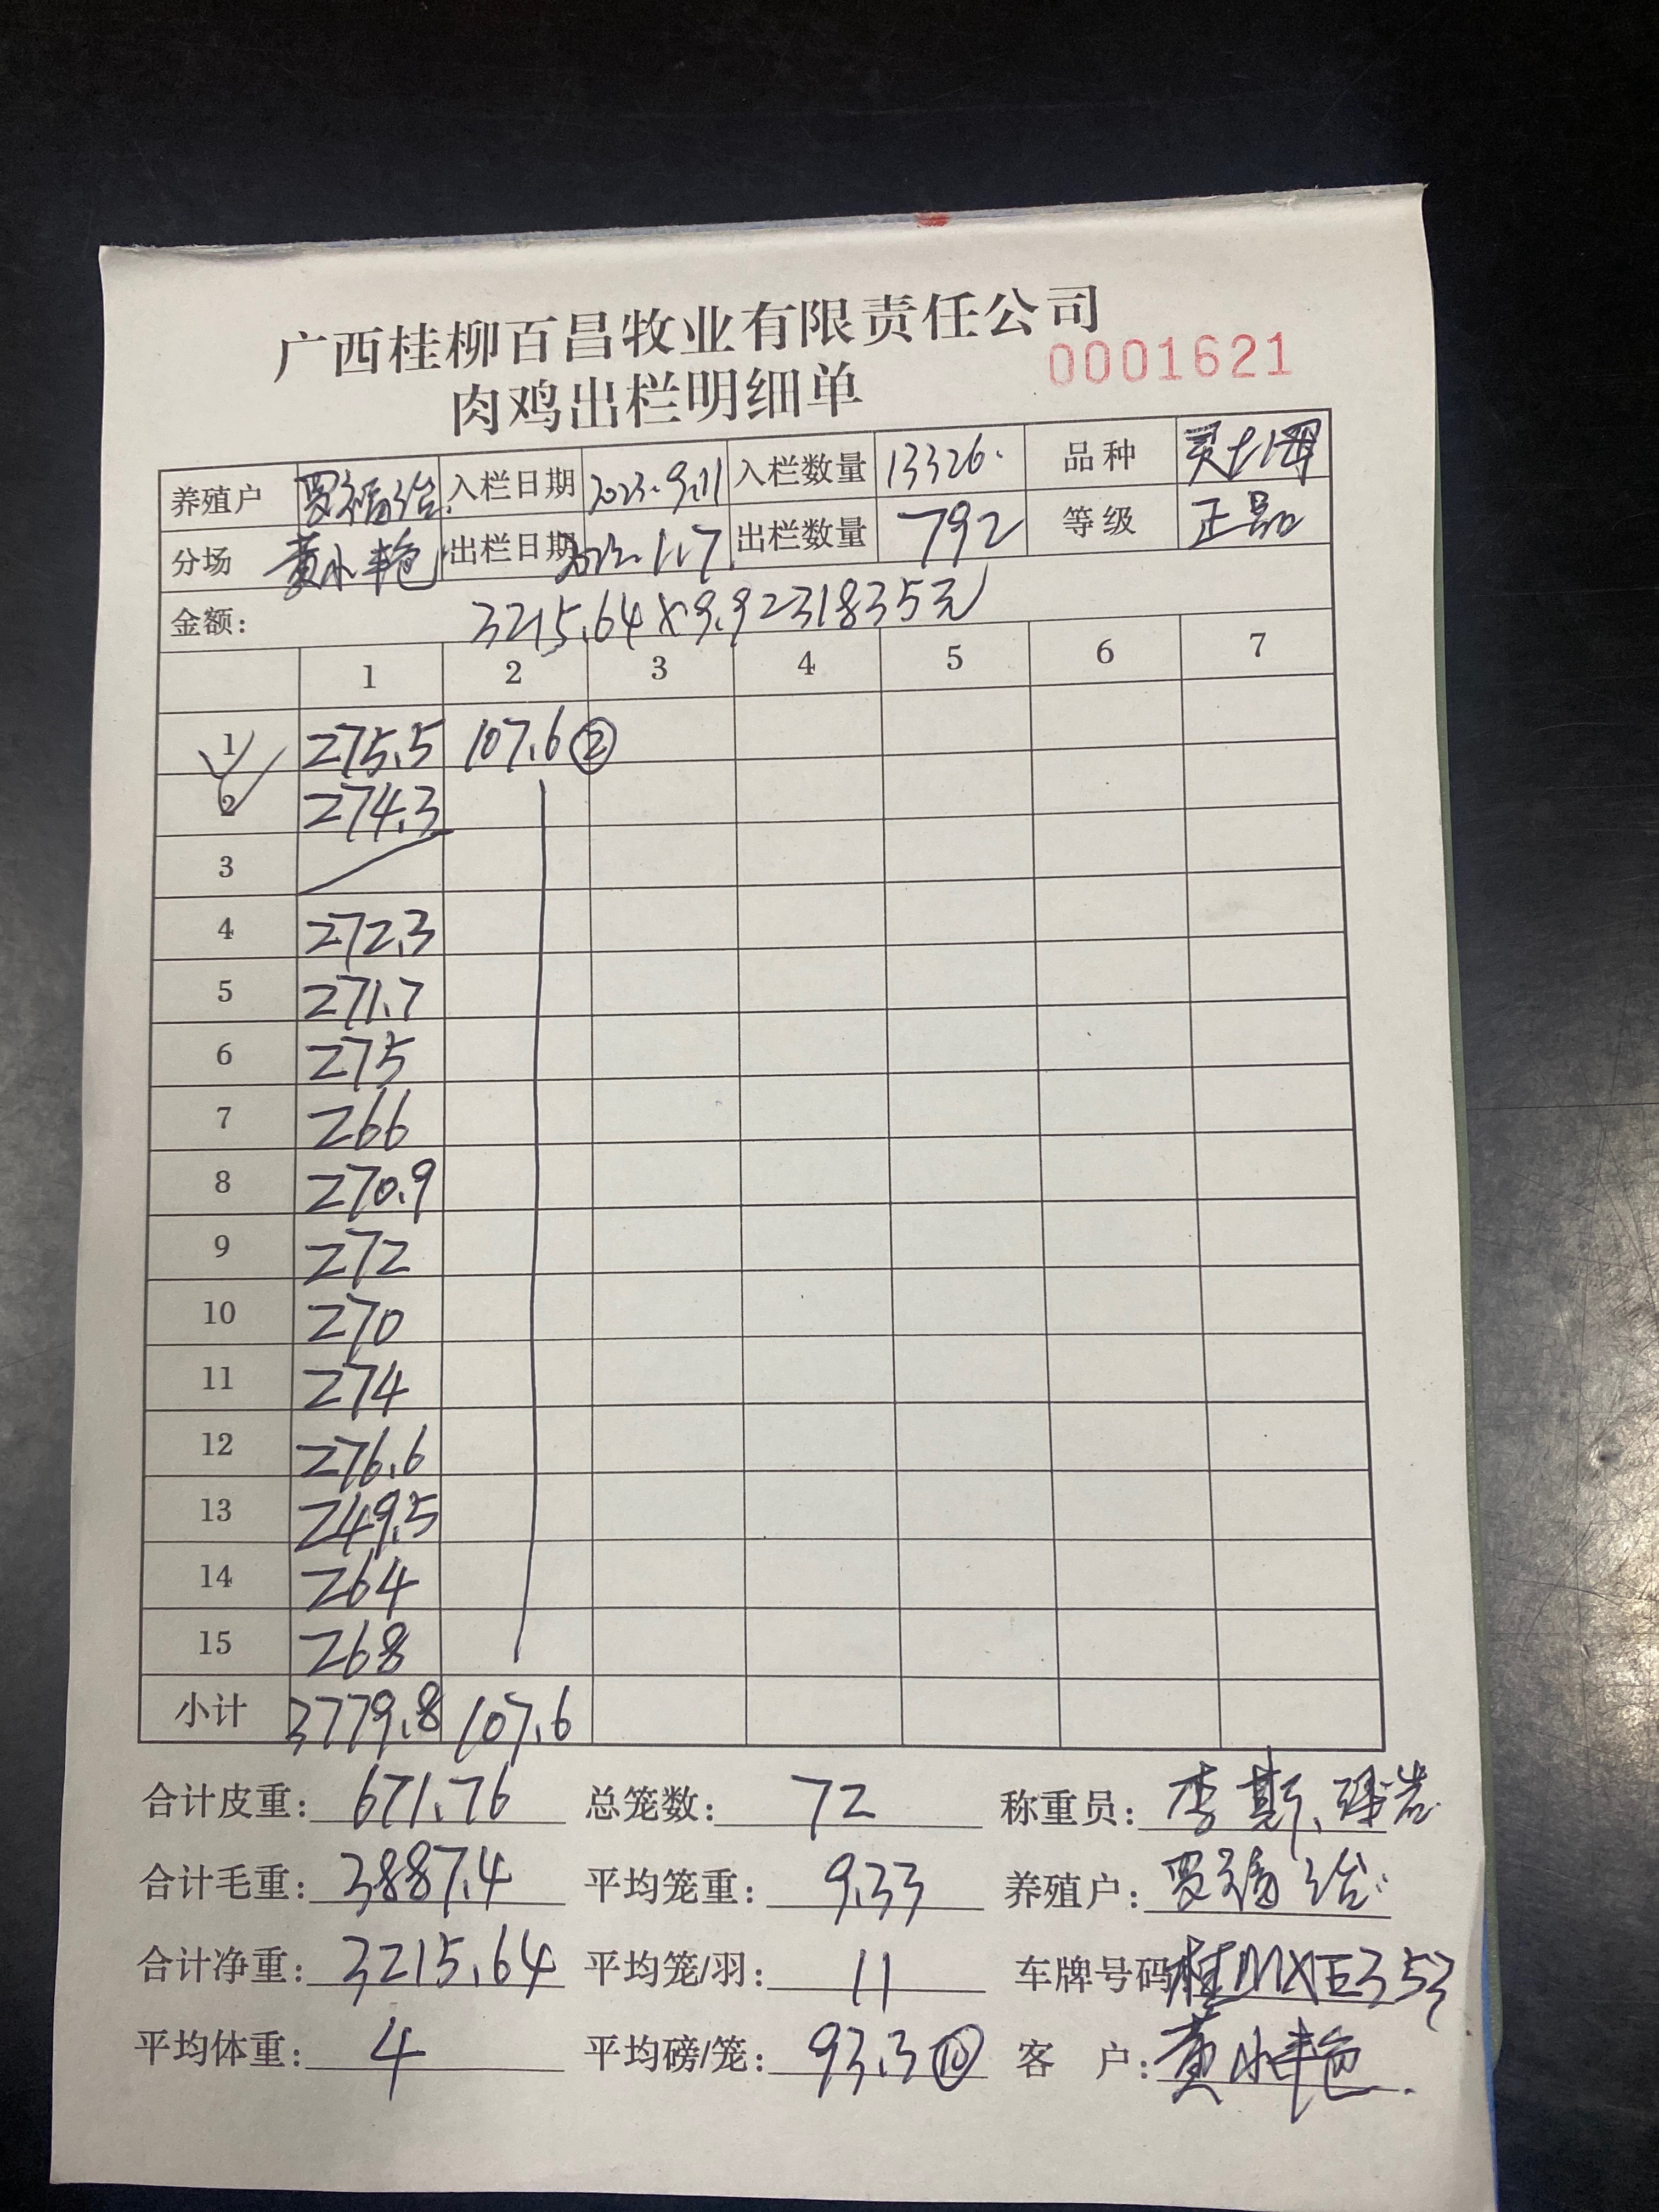 广西桂柳百昌牧业有限责任公司
肉鸡出栏明细单 0001621
养殖户 罗福治 入栏日期 2023.9.11 入栏数量 13326. 品种 灵土
分场 黄小艳 出栏日期 2023.1.17 出栏数量 792 等级 正品
金额: 3215.64×9.9 2 31835元
1 2 3 4 5 6 7
1 275.5 107.6 ②
2 274.3
3
4 272.3
5 271.7
6 275
7 266
8 270.9
9 272
10 270
11 274
12 276.6
13 249.5
14 264
15 268
小计 3779.8 107.6
合计皮重: 671.76 总笼数: 72 称重员: 李斯、
合计毛重: 3887.4 平均笼重: 9.33 养殖户: 罗福治
合计净重: 3215.64 平均笼/羽: 11 车牌号码 桂MXE353
平均体重: 4 平均磅/笼: 93.3 ⑩ 客 户: 黄小艳